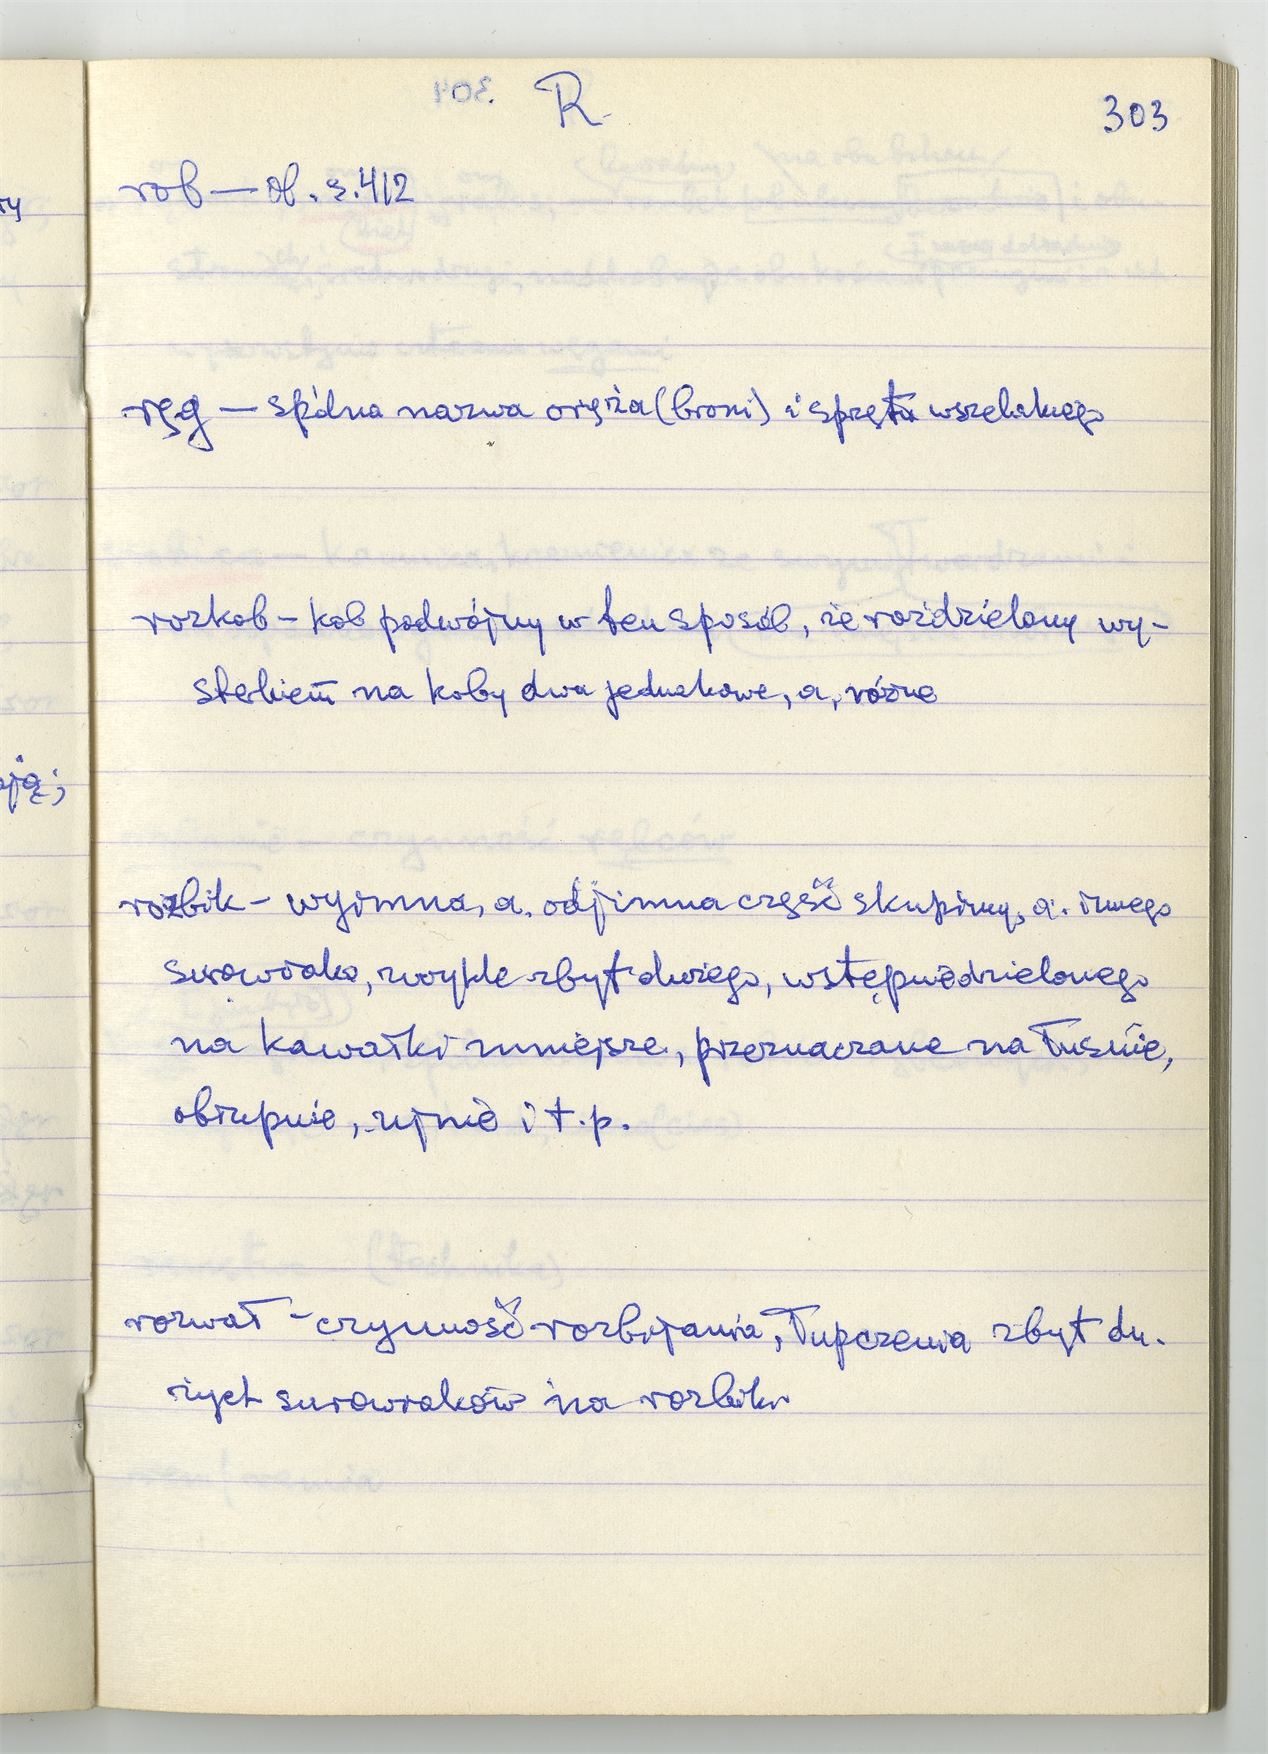 R.
303
rob — ob. s. 412
ręg — spólna nazwa oręża (broni) i sprzętu wszelakiego
rozkob – kob podwójny w ten sposób, że rozdzielony wy-
stekiem na koby dwa jednakowe, a, różne
rozbik – wyimna, a. odjimna część skupiny, a. innego
surowiaka, zwykle zbyt dużego, wstępnie dzielonego
na kawałki mniejsze, przeznaczane na łusnie,
obłupnie, ujnie i t.p.
rozwał – czynność rozbijania, łupczenia zbyt du-
żych surowiaków na rozbiki